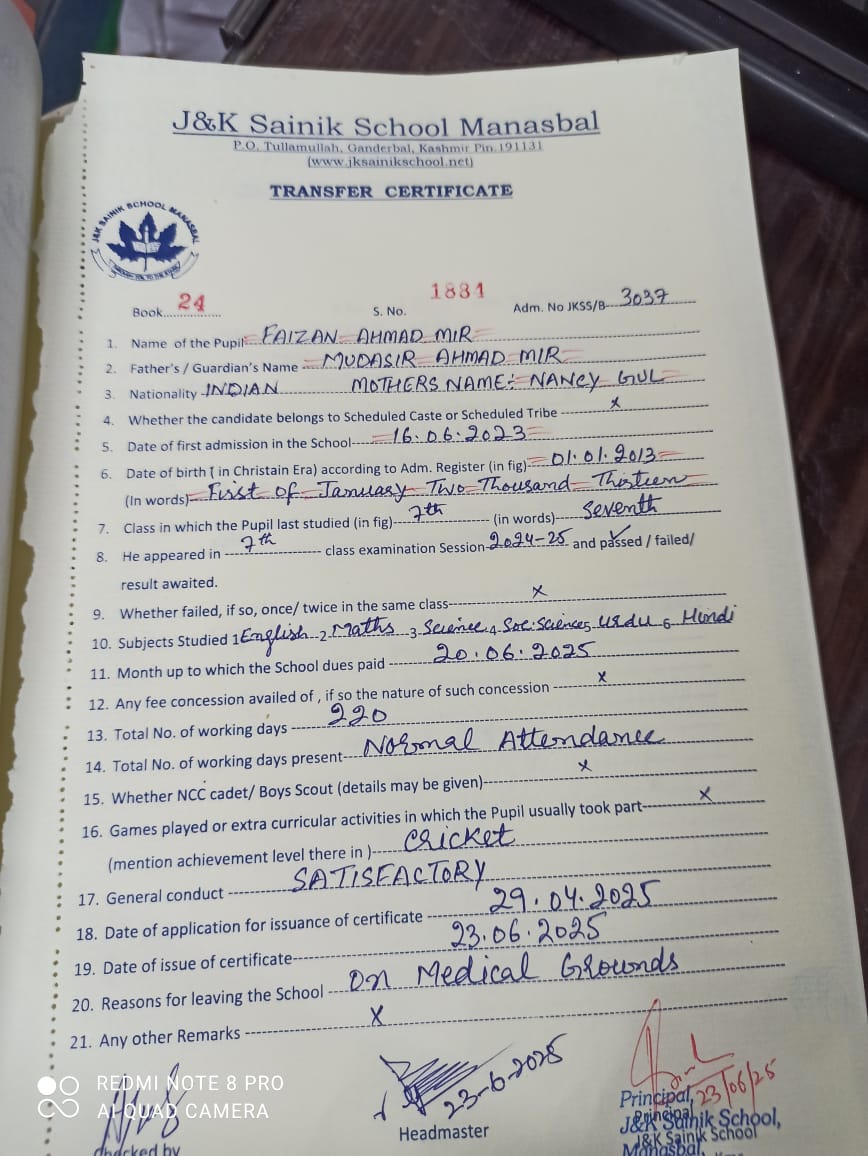 J&K Sainik School Manasbal
P.O. Tullamullah, Ganderbal, Kashmir Pin.191131
(www.jksainikschool.net)
TRANSFER CERTIFICATE
J&K SAINIK SCHOOL MANASBAL
Book.......24.......... S. No. 1884 Adm. No JKSS/B---3037------
1. Name of the Pupil FAIZAN AHMAD MIR
2. Father's / Guardian's Name MUDASIR AHMAD MIR
3. Nationality INDIAN MOTHERS NAME:- NANCY GUL
4. Whether the candidate belongs to Scheduled Caste or Scheduled Tribe x
5. Date of first admission in the School 16.06.2023
6. Date of birth ( in Christain Era) according to Adm. Register (in fig) 01.01.2013
(In words) First of January Two Thousand Thirteen
7. Class in which the Pupil last studied (in fig) 7th (in words) Seventh
8. He appeared in 7th class examination Session 2024-25 and passed / failed/
result awaited.
9. Whether failed, if so, once/ twice in the same class x
10. Subjects Studied 1 English 2 Maths 3 Science 4 Soc. Sciences 5 Urdu 6 Hindi
11. Month up to which the School dues paid 20.06.2025
12. Any fee concession availed of , if so the nature of such concession x
13. Total No. of working days 220
14. Total No. of working days present Normal Attendance
15. Whether NCC cadet/ Boys Scout (details may be given) x
16. Games played or extra curricular activities in which the Pupil usually took part x
(mention achievement level there in ) Cricket
17. General conduct SATISFACTORY
18. Date of application for issuance of certificate 29.04.2025
19. Date of issue of certificate 23.06.2025
20. Reasons for leaving the School On Medical Grounds
21. Any other Remarks x
23-6-2025
23/06/25
Checked by
Headmaster
Principal,
J&K Sainik School,
Manasbal.
Principal
J&K Sainik School
REDMI NOTE 8 PRO
AI QUAD CAMERA